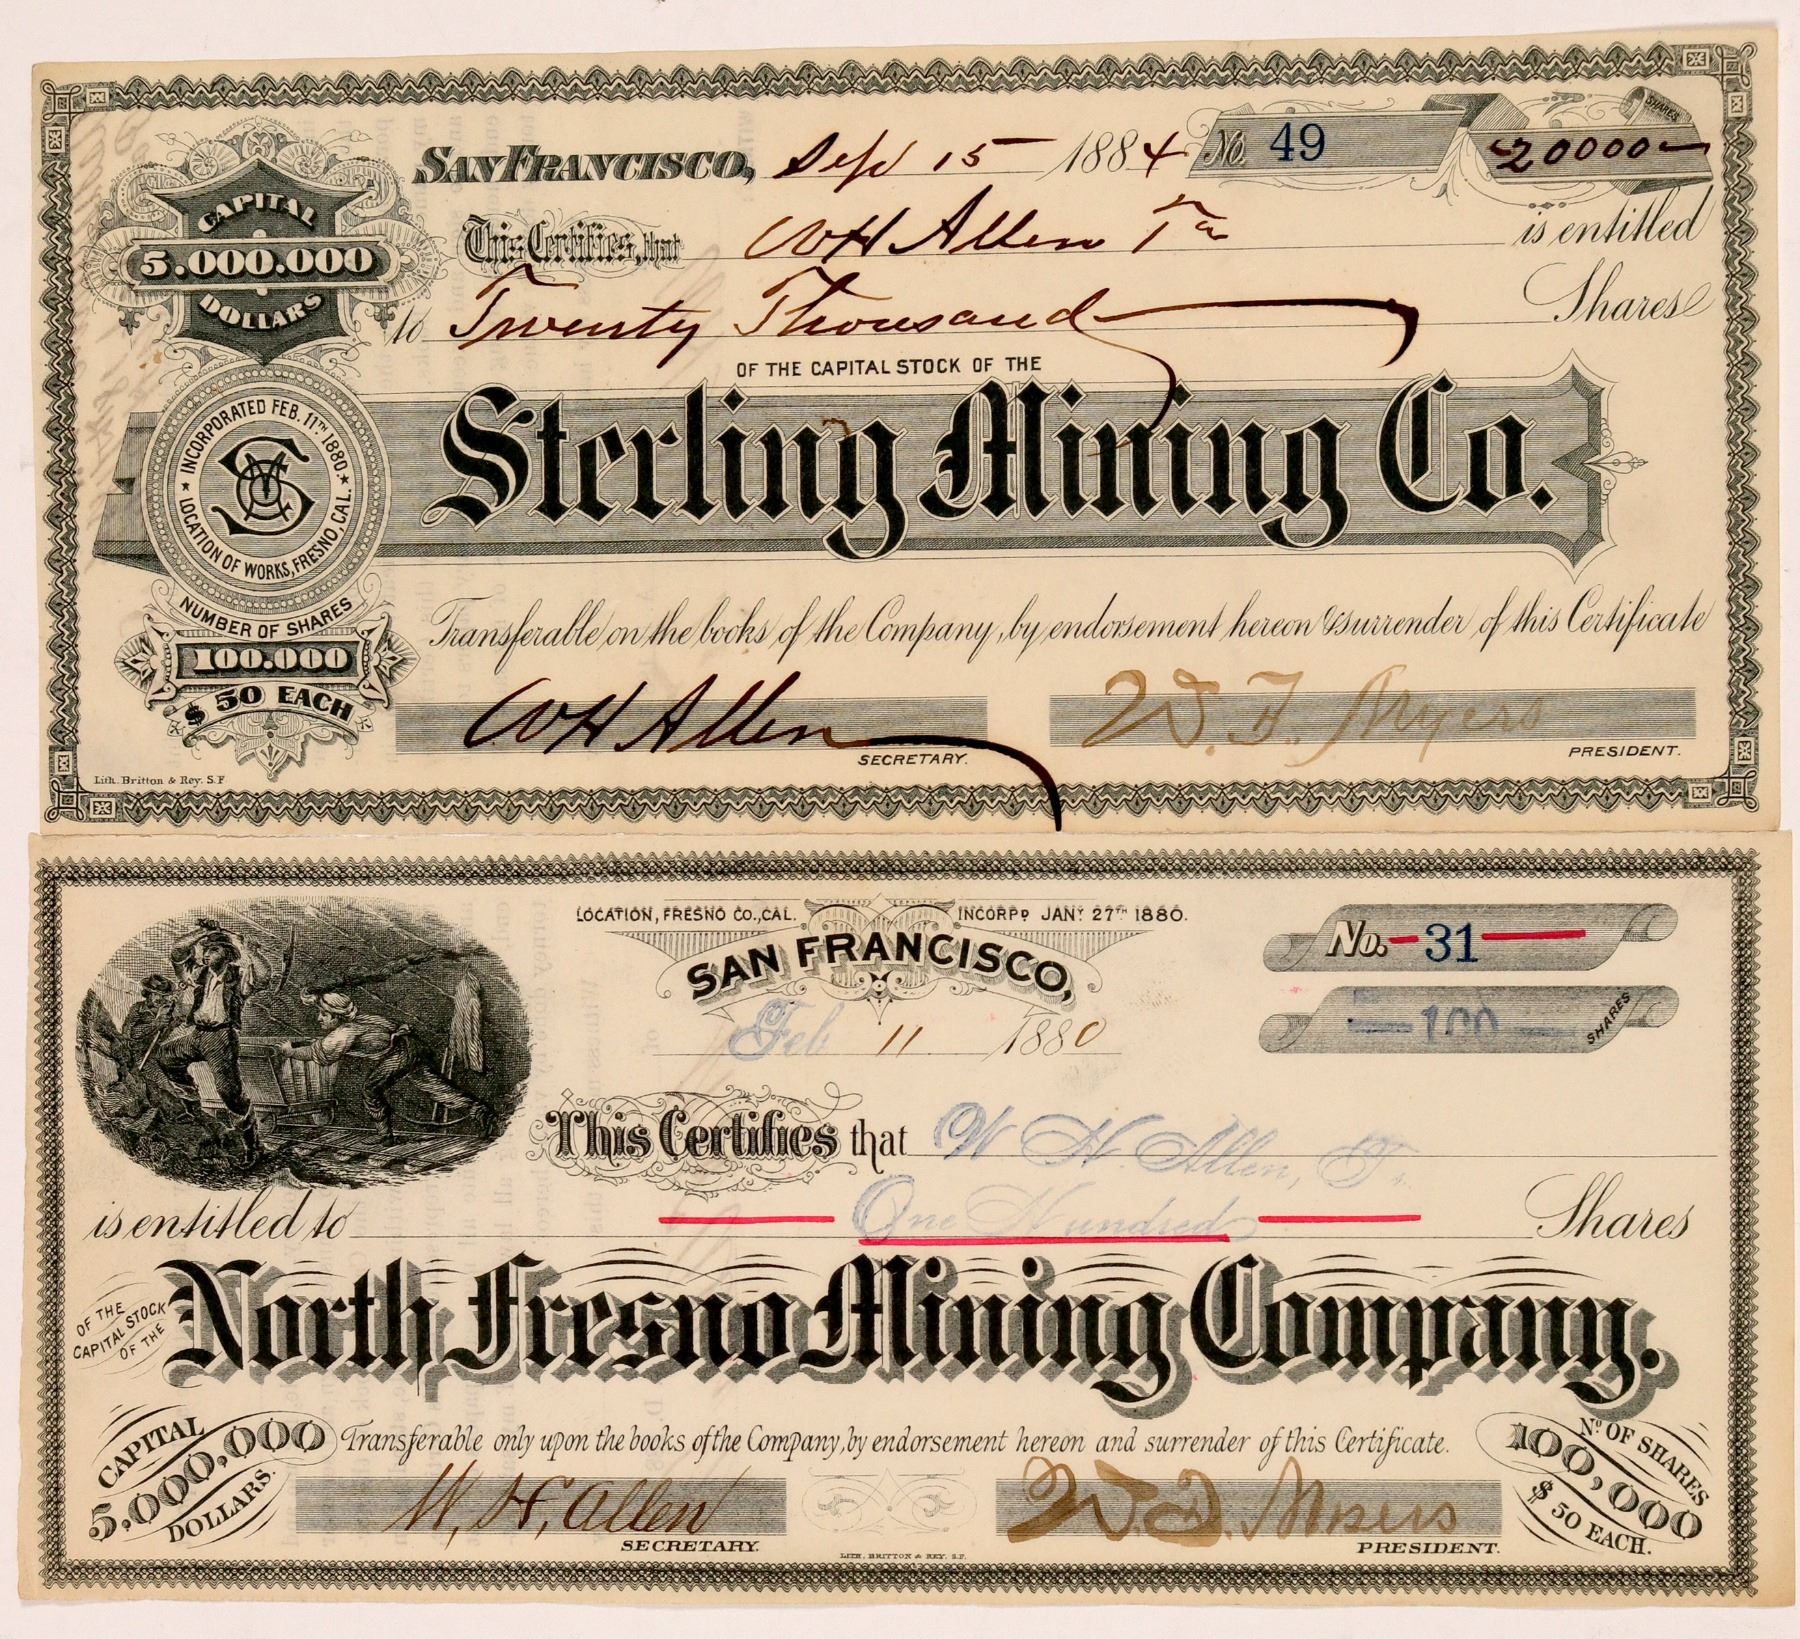 SAN FRANCISCO, Sep 15 1884 No. 49 SHARES 20000
CAPITAL
5.000.000
DOLLARS
This Certifies, that W H Allen Tr is entitled
to Twenty Thousand Shares
OF THE CAPITAL STOCK OF THE
Sterling Mining Co.
INCORPORATED FEB. 11TH 1880.
LOCATION OF WORKS, FRESNO, CAL.
NUMBER OF SHARES
100.000
$ 50 EACH
Transferable on the books of the Company, by endorsement hereon & surrender of this Certificate
W H Allen
SECRETARY.
W. F. Myers
PRESIDENT.
Lith. Britton & Rey. S.F
LOCATION, FRESNO CO., CAL. INCORPD JANY 27TH 1880.
SAN FRANCISCO,
No. 31
100 SHARES
Feb 11 1880
This Certifies that W. H. Allen, Tr.
is entitled to One Hundred Shares
OF THE
CAPITAL STOCK
OF THE
North Fresno Mining Company.
CAPITAL
5,000,000
DOLLARS.
Transferable only upon the books of the Company, by endorsement hereon and surrender of this Certificate.
No OF SHARES
100,000
$ 50 EACH.
W. H. Allen
SECRETARY.
PRESIDENT.
LITH. BRITTON & REY. S.F.